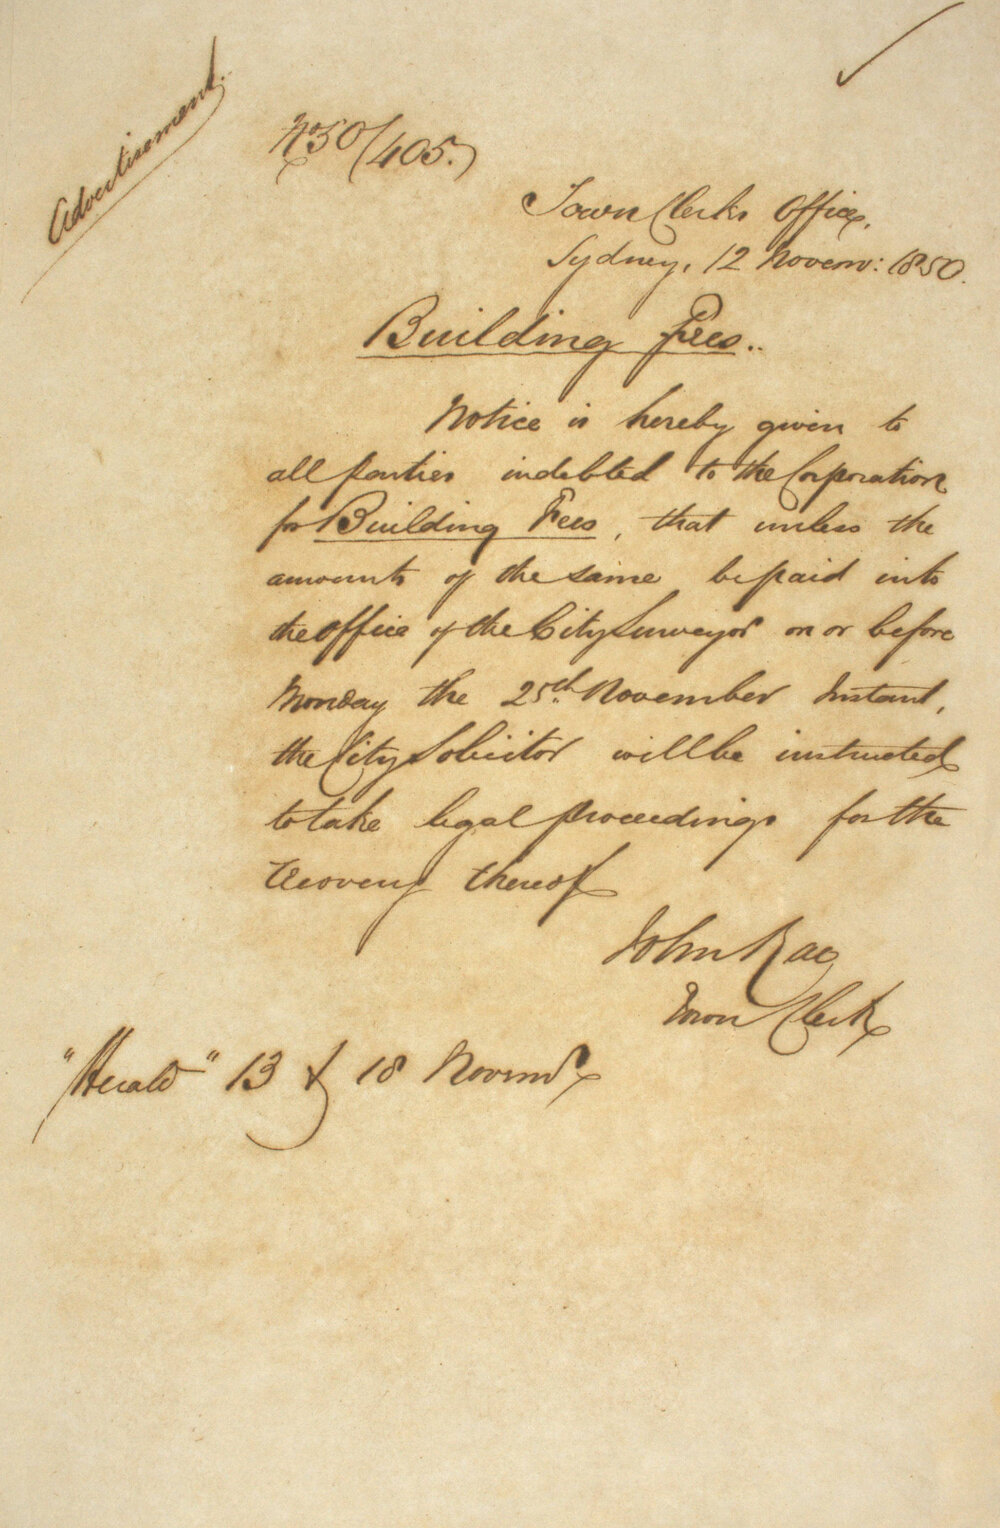 Advertisement.
No 50/405.
Town Clerks Office,
Sydney, 12 Novem: 1850.
Building Fees..
Notice is hereby given to
all parties indebted to the Corporation
for Building Fees, that unless the
amounts of the same be paid into
the Office of the City Surveyor on or before
Monday the 25th November Instant,
the City Solicitor will be instructed
to take legal proceedings for the
recovery thereof
John Rae
Town Clerk
"Herald" 13 & 18 Novemr